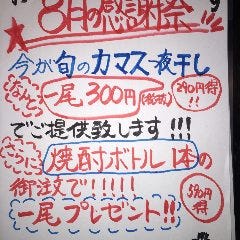 8月の感謝祭
今が旬のカマス一夜干し
なんと 一尾300円(税抜) 290円得!!
でご提供致します!!!
さらに 焼酎ボトル1本の
御注文で!!!!!
一尾プレゼント!! 590円得